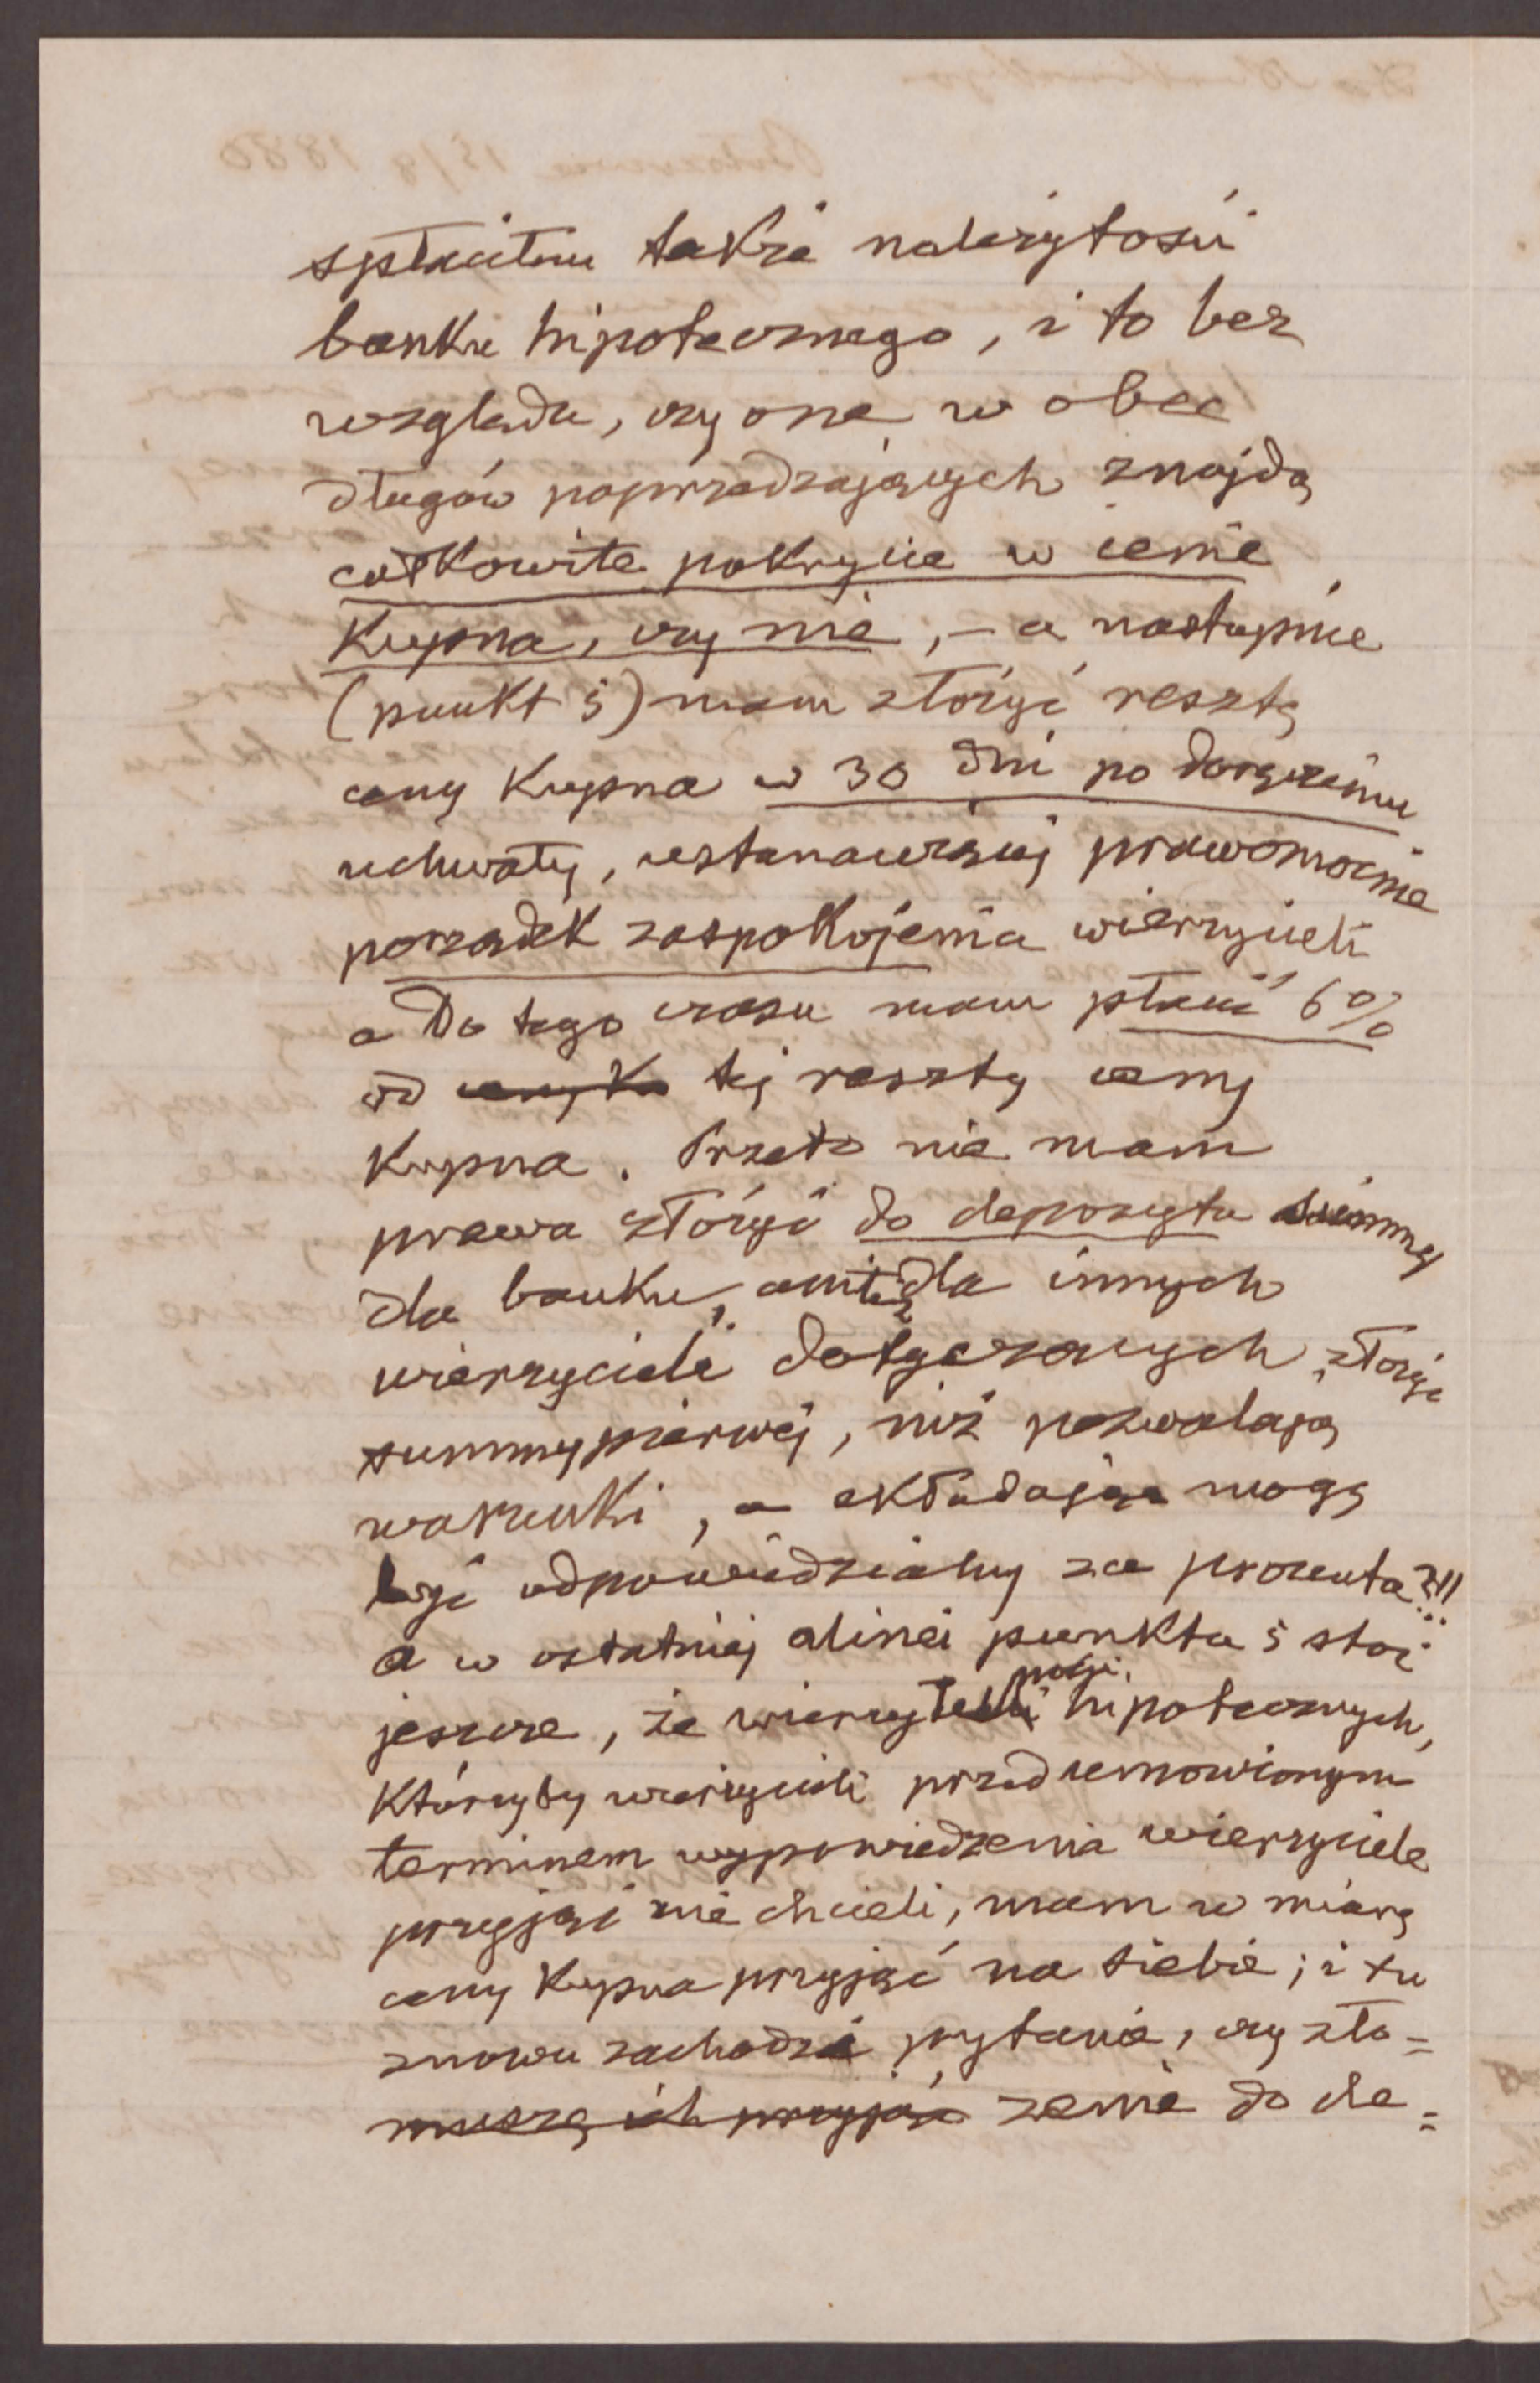 spłaciłem także należytości
banku hipotecznego, i to bez
względu, czy one w obec
długów poprzedzających znajdą
całkowite pokrycie w cenie
kupna, czy nie, – a następnie
(punkt 5) mam złożyć resztę
ceny kupna w 30 dni po doręczeniu
uchwały, ustanawiającej prawomocnie
porządek zaspokojenia wierzycieli
a do tego czasu mam płacić 6%
od tej reszty ceny
kupna. Przeto nie mam
prawa złożyć do depozytu summy
dla banku, ani dla innych
wierzycieli dotyczących, złożyć
summy pierwej, niż pozwalają
warunki, a składając mogę
być odpowiedzialny za procenta?!!
a w ostatniej alinei punktu 5 stoi
jeszcze, że wierzytelności hipotecznych,
którzyby wierzycieli przed umowionym
terminem wypowiedzenia wierzyciele
przyjąć nie chcieli, mam w miarę
ceny kupna przyjąć na siebie; i tu
znowu zachodzi pytanie, czy zło=
muszę ich przyjąć żenie do de=